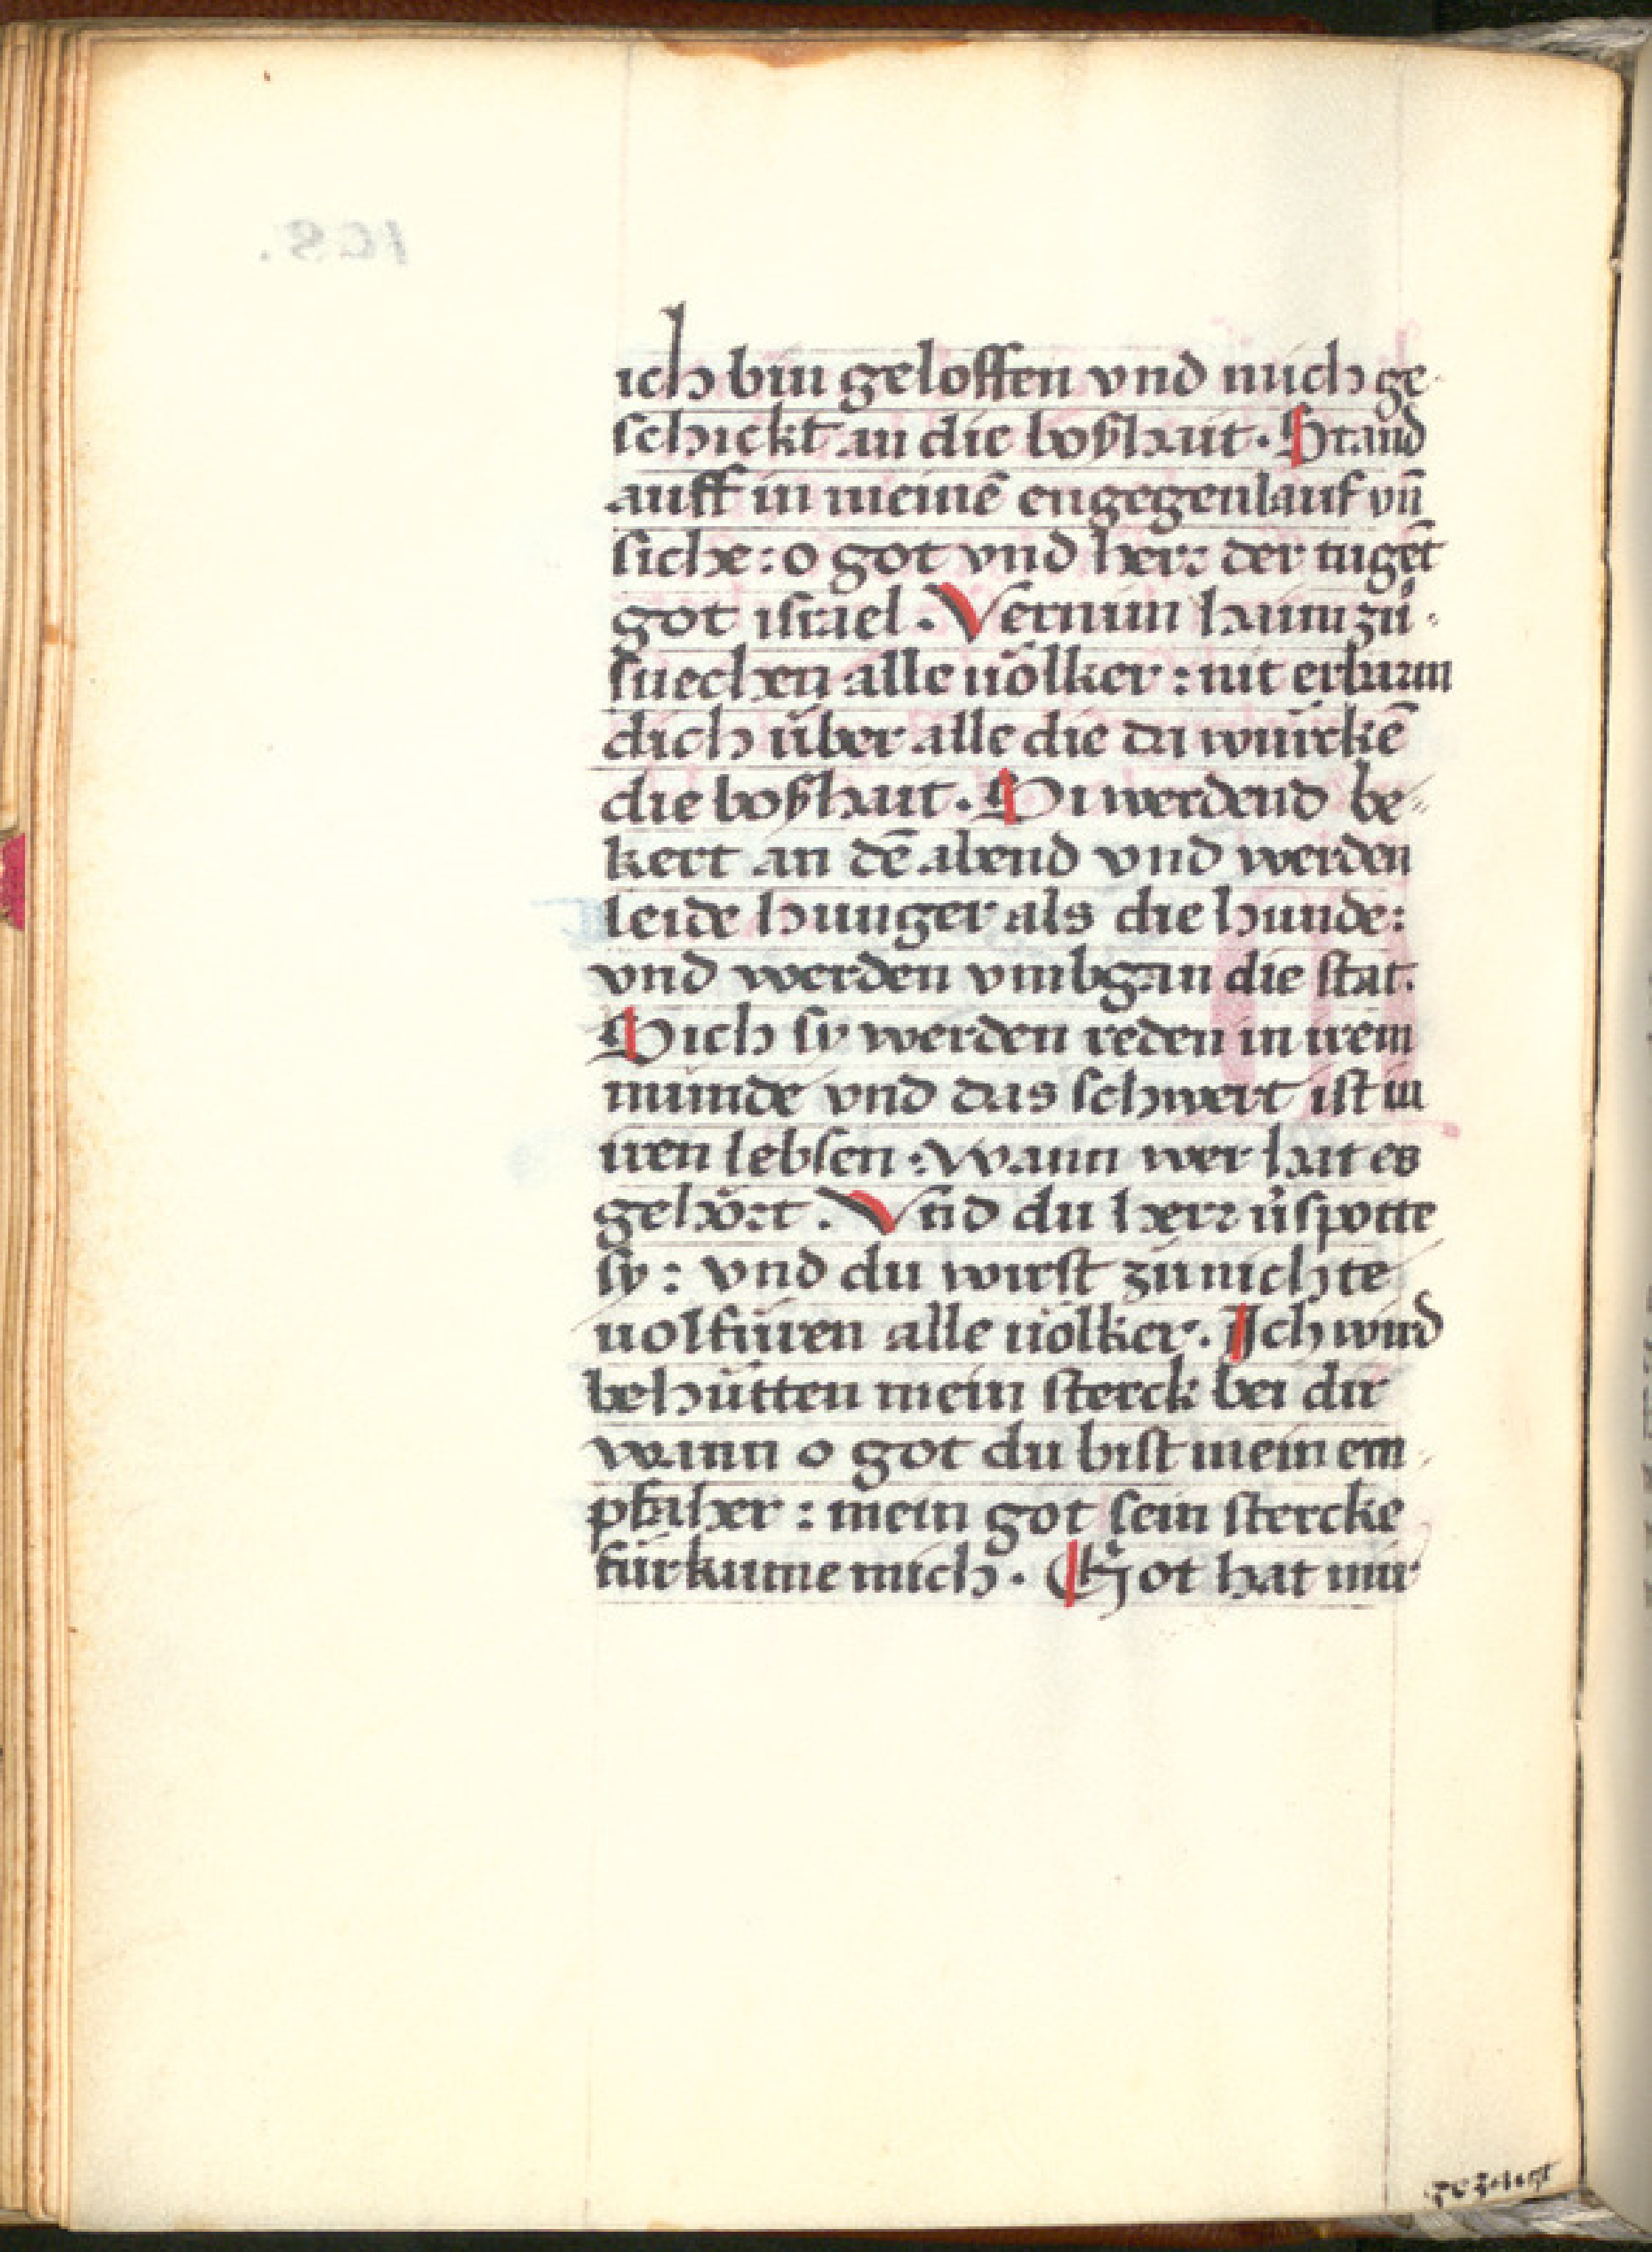 ich bin geloffen vnd mich ge-
schickt an die boßhait. Stand
auff in meinē engegenlauf vn̄
siche: o got vnd herr der tugēt
got israel. Vernim haimzů-
suechen alle uölker: nit erbarm
dich über alle die da würkē
die boßhait. Si werdend be-
kert an dē abend vnd werden
leide hunger als die hunde:
vnd werden vmbgan die stat.
Sich sy werden reden in irem
munde vnd das schwert ist in
iren lebsen: wann wer hat es
gehört. Vnd du herr űspotte
sy: vnd du wirst zů nichte
uolfüren alle uölker. Ich wird
behütten mein sterck bei dir
wann o got du bist mein em-
pfaher: mein got sein stercke
fürkume mich. Got hat mir